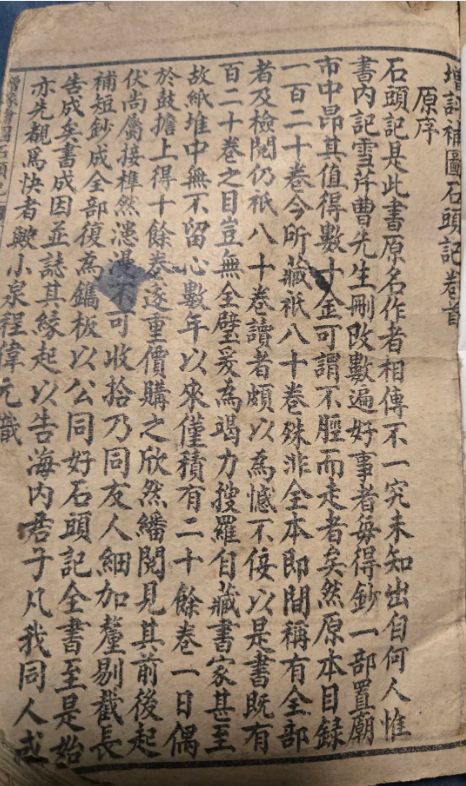 增評補圖石頭記卷首
原序
石頭記是此書原名作者相傳不一究未知出自何人惟
書内記雪芹曹先生刪改數遍好事者每得鈔一部置廟
市中昂其值得數十金可謂不脛而走者矣然原本目錄
一百二十卷今所藏祇八十卷殊非全本即間稱有全部
者及檢閱仍祇八十卷讀者頗以爲憾不佞以是書既有
百二十卷之目豈無全璧爰為竭力搜羅自藏書家甚至
故紙堆中無不留心數年以來僅積有二十餘卷一日偶
於鼓擔上得十餘卷遂重價購之欣然繙閱見其前後起
伏尚屬接榫然漶漫不可收拾乃同友人細加釐剔截長
補短鈔成全部復為鐫板以公同好石頭記全書至是始
告成矣書成因並誌其緣起以告海内君子凡我同人或
亦先覩爲快者歟小泉程偉元識